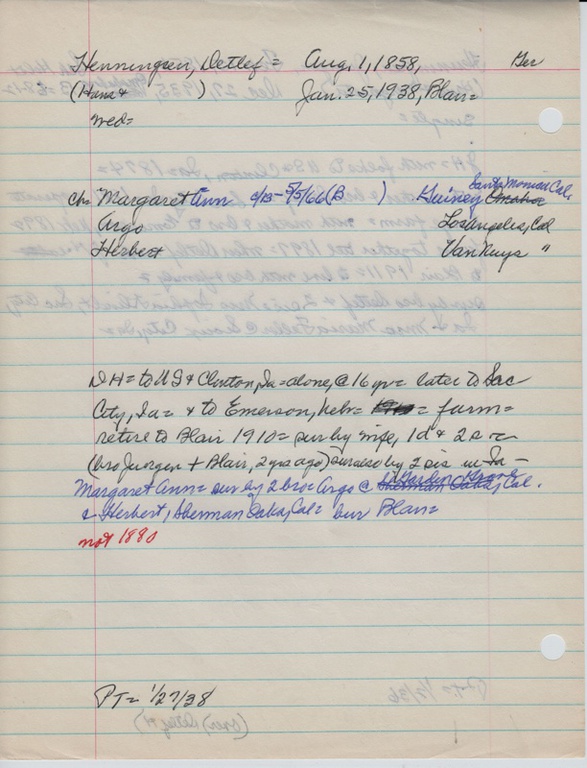 Henningsen, Detlef = Aug. 1, 1858, Ger
(Hans & ) Jan. 25, 1938, Blair=
wed=
ch= Margaret Ann 9/13-5/5/66 (B ) Guiney Santa Monica Cal. Omaha
Argo Los Angeles, Cal
Herbert Van Nuys "
DH= to US & Clinton, Ia= alone, @ 16 yr= later to Sac
City, Ia= & to Emerson, Nebr= 1910= farm=
retire to Blair 1910= sur by wife, 1d & 2s=
(bro Juergen + Blair, 2 yrs ago) sur also by 2 sis in Ia-
Margaret Ann= sur by 2 bro= Argo @ Sherman Oaks, Garden Grove, Cal.
& Herbert, Sherman Oaks, Cal= bur Blair=
not 1880
PT= 1/27/38